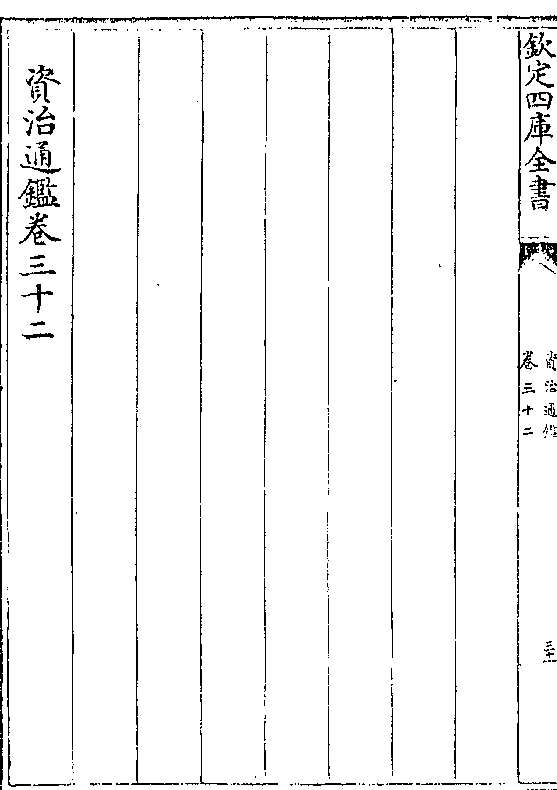 欽定四庫全書
資治通鑑
卷三十二
資治通鑑卷三十二